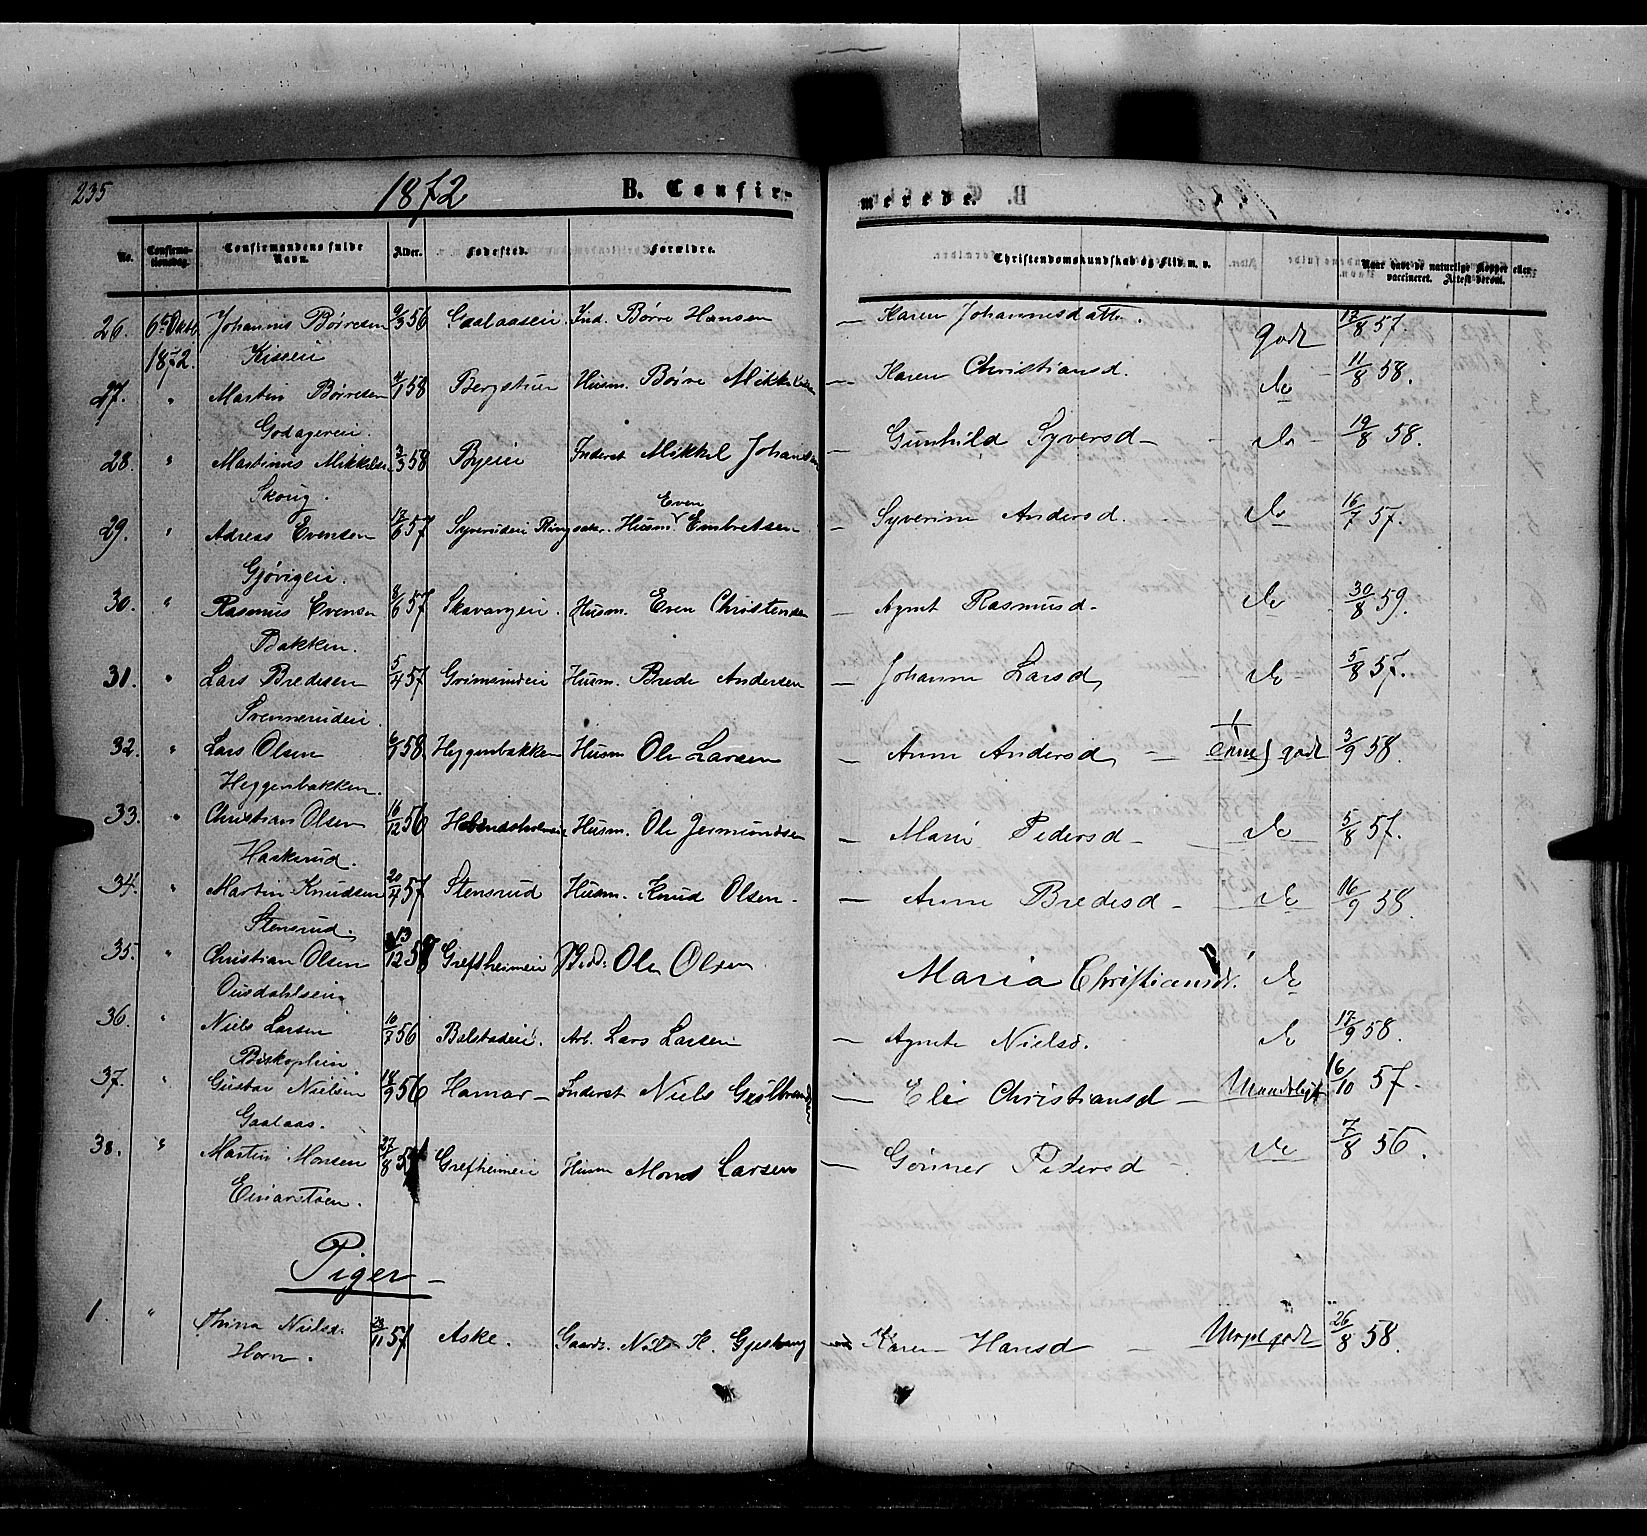 235 1872 B. Confirmerede.
No. Confirmationsdag. Confirmandens fulde Navn. Alder. Fødested. Forældre. Christendomskundskab og Flid m. v. Naar havt de naturlige Kopper eller vaccineret. Attest derom.
26. 6te Octbr Johannes Børresen 9/3 56 Gaalaaseie Ind. Børre Hansen — Karen Johannesdatter. godt 12/8 57.
1872. Kisseie
27. " Martin Børresen 7/1 58 Bergstuen Husm. Børre Mikkelsen — Karen Christiansd. do 11/8 58.
Godagereie.
28. " Martinus Mikkelsen 2/3 58 Byeie Inderst Mikkel Johansen — Gunhild Syversd — do — 19/8 58.
Skoug.
29. " Adreas Evensen 12/6 57 Syverudeie Ringsaker. Husm. Even Embretsen — Syverine Andersd. do 16/7 57.
Gjøvigeie.
30. " Rasmus Evensen 8/6 57 Skavangeie. Husm. Even Christensen — Agnet Rasmusd. do 30/8 59.
Bakken.
31. " Lars Bredesen 5/4 57 Grimsrudeie Husm. Brede Andersen — Johanne Larsd. do 5/8 57.
Svennerudeie.
32. " Lars Olsen 6/1 58. Heggenbakken Husm Ole Larsen — Anne Andersd. — godt 3/9 58.
Heggenbakken.
33. " Christian Olsen 16/12 56 Husm. Ole Jermundsen — Marie Pedersd — do 5/8 57.
Haskerud.
34. " Martin Knudsen 20/4 57 Stensrud Husm. Knud Olsen. — Anne Bredesd — do 16/9 58.
Stensrud.
35. " Christian Olsen 13/12 58 Greftheimeie Ole Olsen Maria Christiansd. do
Ousdahlseie.
36. " Niels Larsen 10/7 56 Balstadeie. Arb. Lars Larsen — Agnete Nielsd. do 17/9 58.
Biskoplien.
37. " Gustav Nielsen 18/9 56 Hamar — Inderst Niels Gulbrandsen — Eli Christiansd — Maadeligt 16/10 57.
Gaalaas.
38. " Martin Monsen 27/8 57 Greftheimeie Husm Mons Larsen — Gønner Pedersd do 7/8 56.
Einarstøen.
Piger —
1. " Thina Nielsd. 23/11 57 Aske. Gaardr. Niels H. Gjestvang — Karen Hansd — Meget godt 26/8 58.
Horn.